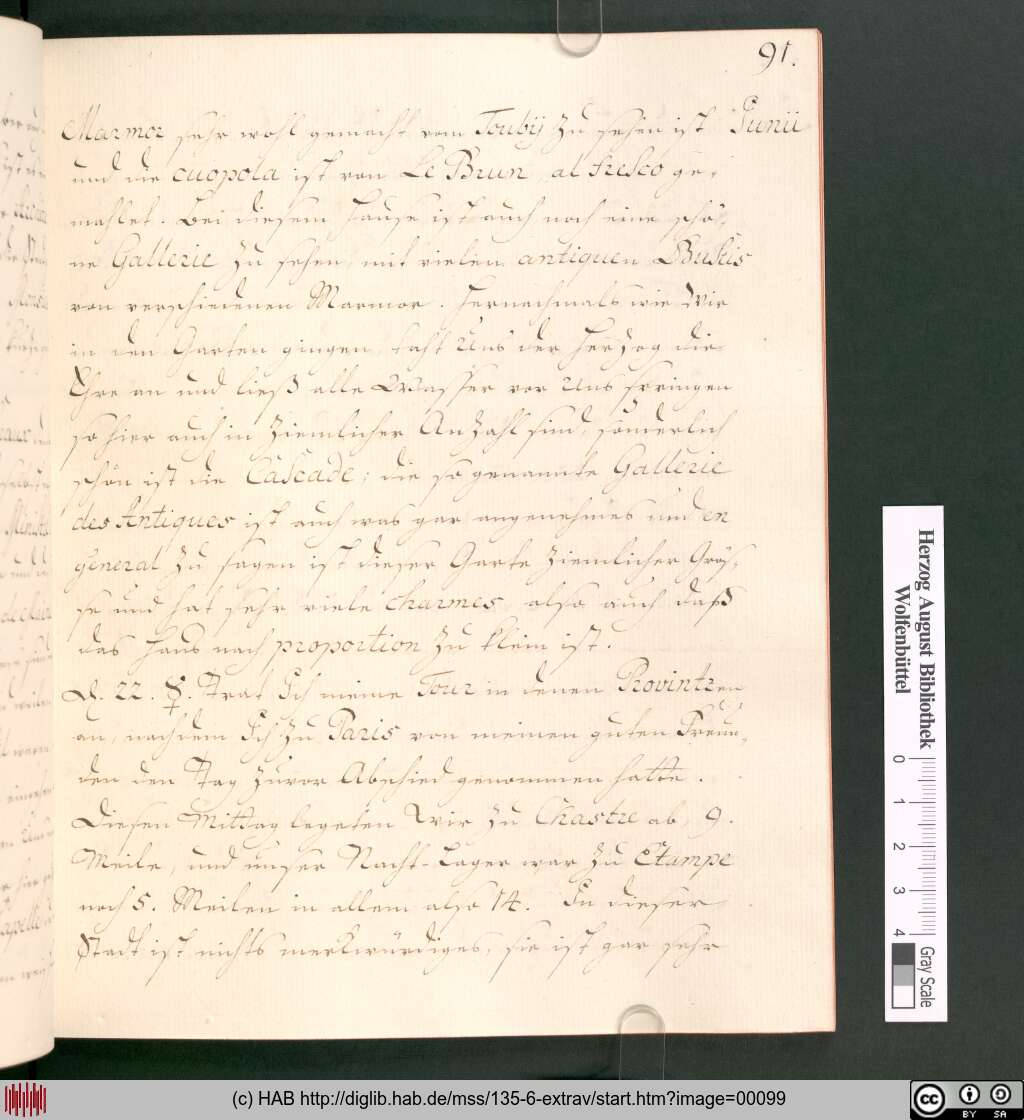 91.
Marmor sehr wohl gemacht vom Touby zu sehen ist Junii
und die cuopola ist von Le Brun al fresco ge-
mahlet. Bei diesem Hause ist auch noch eine schö-
ne Gallerie zu sehen mit vielen antiquen Bustis
von verschiedenen Marmor. Hernachmals wie Wir
in den Garten gingen, taht Uns der Herzog die
Ehre an und ließ alle Wasser vor Uns springen
so hier auch in ziemlicher Anzahl sind, sonderlich
schön ist die Cascade; die so genannte Gallerie
des Antiques ist auch was gar angenehmes und en
general zu sagen ist dieser Garte ziemlicher Grös-
se und hat sehr viele charmes, also auch daß
das Haus nach proportion zu klein ist.
D. 22. ☿. Trat Ich meine Tour in denen Provintzen
an, nachdem Ich zu Paris von meinen guten Freun-
den den Tag zuvor Abschied genommen hatte.
Diesen Mittag legeten Wir zu Chastre ab, 9.
Meile, und unser Nacht-Lager war zu Etampe
noch 5. Meilen in allem also 14. In dieser
Stadt ist nichts merkwürdiges, sie ist gar sehr
Herzog August Bibliothek
Wolfenbüttel
0 1 2 3 4
Gray Scale
(c) HAB http://diglib.hab.de/mss/135-6-extrav/start.htm?image=00099
cc BY SA